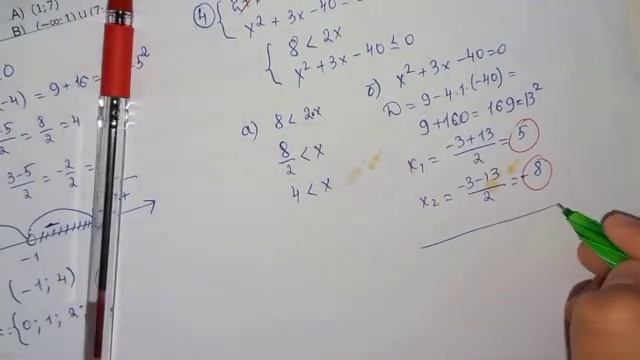 A) (1;7)
B) (-∞;1)∪(7;
0
-4) = 9+16 = 5²
-5/2 = 8/2 = 4
3-5/2 = -2/2 =
-1
(-1; 4)
{0; 1; 2;
④
x² + 3x - 40
{ 8 < 2x
x² + 3x - 40 ≤ 0
а) 8 < 2x
8/2 < x
4 < x
б) x² + 3x - 40 = 0
D = 9 - 4·1·(-40) =
9+160 = 169 = 13²
x₁ = -3+13/2 = 5
x₂ = -3-13/2 = -8